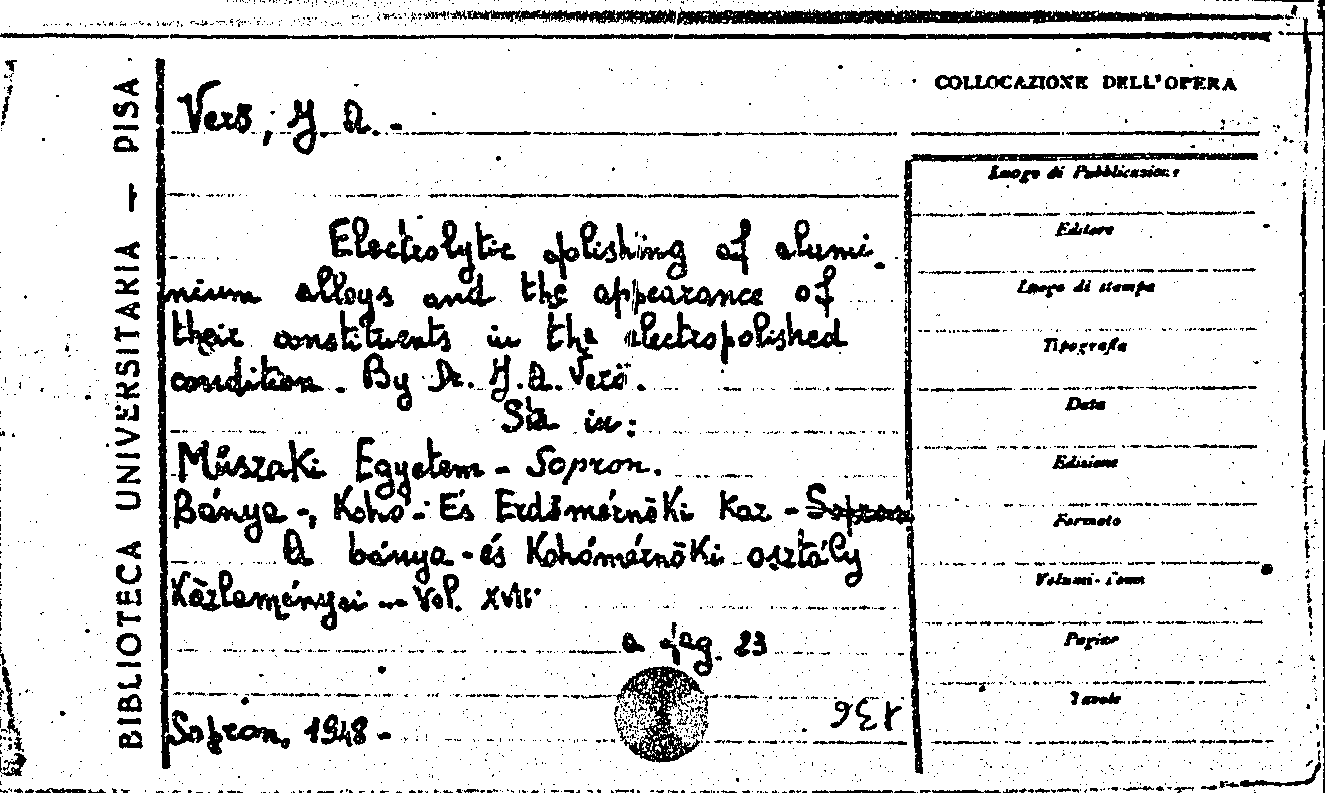 BIBLIOTECA UNIVERSITARIA — PISA
COLLOCAZIONE DELL'OPERA
Verö, J. A. -
Electrolytic polishing of alumi-
nium alloys and the appearance of
their constituents in the electropolished
condition. By Dr. J. A. Verö.
Sta in:
Műszaki Egyetem - Sopron.
Bánya-, Kohó- És Erdőmérnöki Kar - Sopron
A bánya-és Kohómérnöki osztály
Közleményei - Vol. XVII
a pag. 23
Sopron, 1948 -
136
Luogo di Pubblicazione
Editore
Luogo di stampa
Tipografia
Data
Edizione
Formato
Volumi-Tomi
Pagine
Tavole